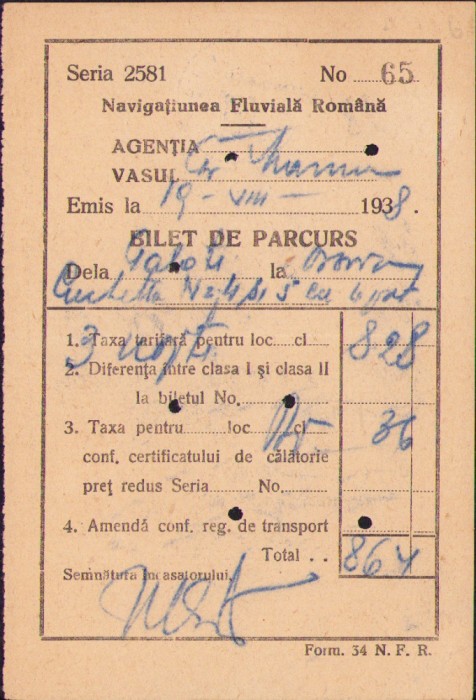 Seria 2581 No 65
Navigațiunea Fluvială Română
AGENȚIA
VASUL
Emis la 19 - VIII - 1938.
BILET DE PARCURS
Dela Galați la Orșova
Cuchetta No 4 și 5 cu 6 pat
3 nopți
1. Taxa tarifară pentru loc cl 828
2. Diferența între clasa I și clasa II
la biletul No.
3. Taxa pentru loc cl 36
conf. certificatului de călătorie
preț redus Seria No.
4. Amendă conf. reg. de transport
Total . . 864
Semnătura încasatorului
Form. 34 N. F. R.